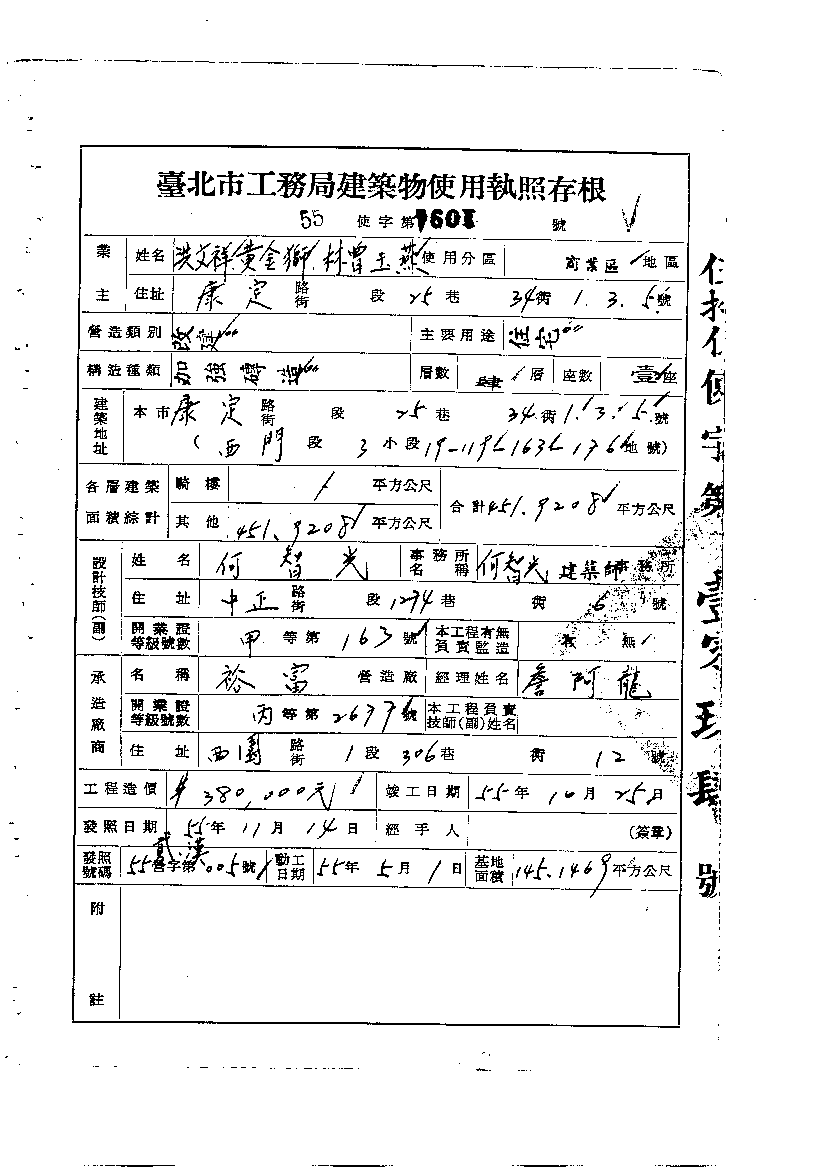 臺北市工務局建築物使用執照存根
55 使字第1601號
業主 姓名 洪文祥 黃金獅 林曾玉燕 使用分區 商業區 地區
住址 康定 路街 段 25巷 34衖 1.3.5號
營造類別 改建 主要用途 住宅
構造種類 加強磚造 層數 肆層 座數 壹座
建築地址 本市康定 路街 段 25巷 34衖 1.3.5.號
(西門段 3小段 19-119 163 176 地號)
各層建築面積綜計 騎樓 / 平方公尺 合計451.9208平方公尺
其他 451.9208 平方公尺
設計技師(副) 姓名 何智光 事務所名稱 何智光 建築師事務所
住址 中正 路街 段 1274巷 衖 6號
開業證等級號數 甲等第163號 本工程有無負責監造 有 無
承造廠商 名稱 裕富 營造廠 經理姓名 詹阿龍
開業證等級號數 丙等第2637號 本工程負責技師(副)姓名
住址 西園 路街 1段 306巷 衖 12號
工程造價 380,000元 竣工日期 55年10月25日
發照日期 55年11月14日 經手人 (簽章)
發照號碼 55營字第005號 動工日期 55年5月1日 基地面積 145.1469平方公尺
附註
使字第壹零玖肆號